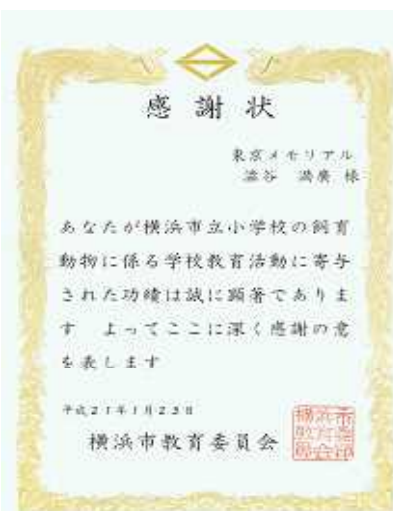 感謝状
東京メモリアル
澁谷 満廣 様
あなたが横浜市立小学校の飼育
動物に係る学校教育活動に寄与
された功績は誠に顕著でありま
す よってここに深く感謝の意
を表します
平成21年1月23日
横浜市教育委員会